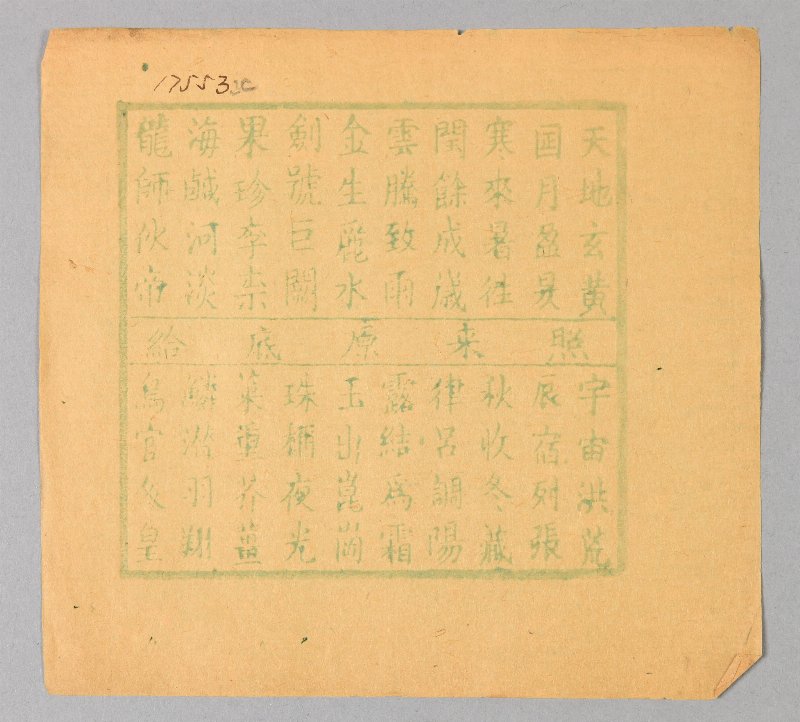 17553
天地玄黃
囸月盈昃
寒來暑往
閏餘成歲
雲騰致雨
金生麗水
劍號巨闕
果珍李柰
海鹹河淡
龍師伙帝
照来原底給
宇宙洪荒
辰宿列張
秋收冬藏
律呂調陽
露結爲霜
玉出崑崗
珠稱夜光
菜重芥薑
鱗潛羽翔
鳥官人皇